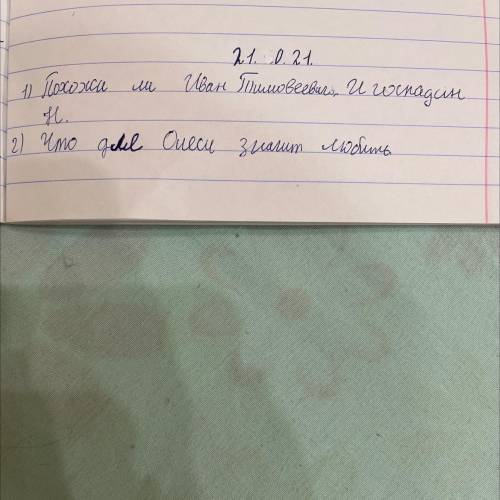 21. 0.21.
1) Похожи ли Иван Тимовеевич, И господин
Н.
2) Что для Олеси значит любить